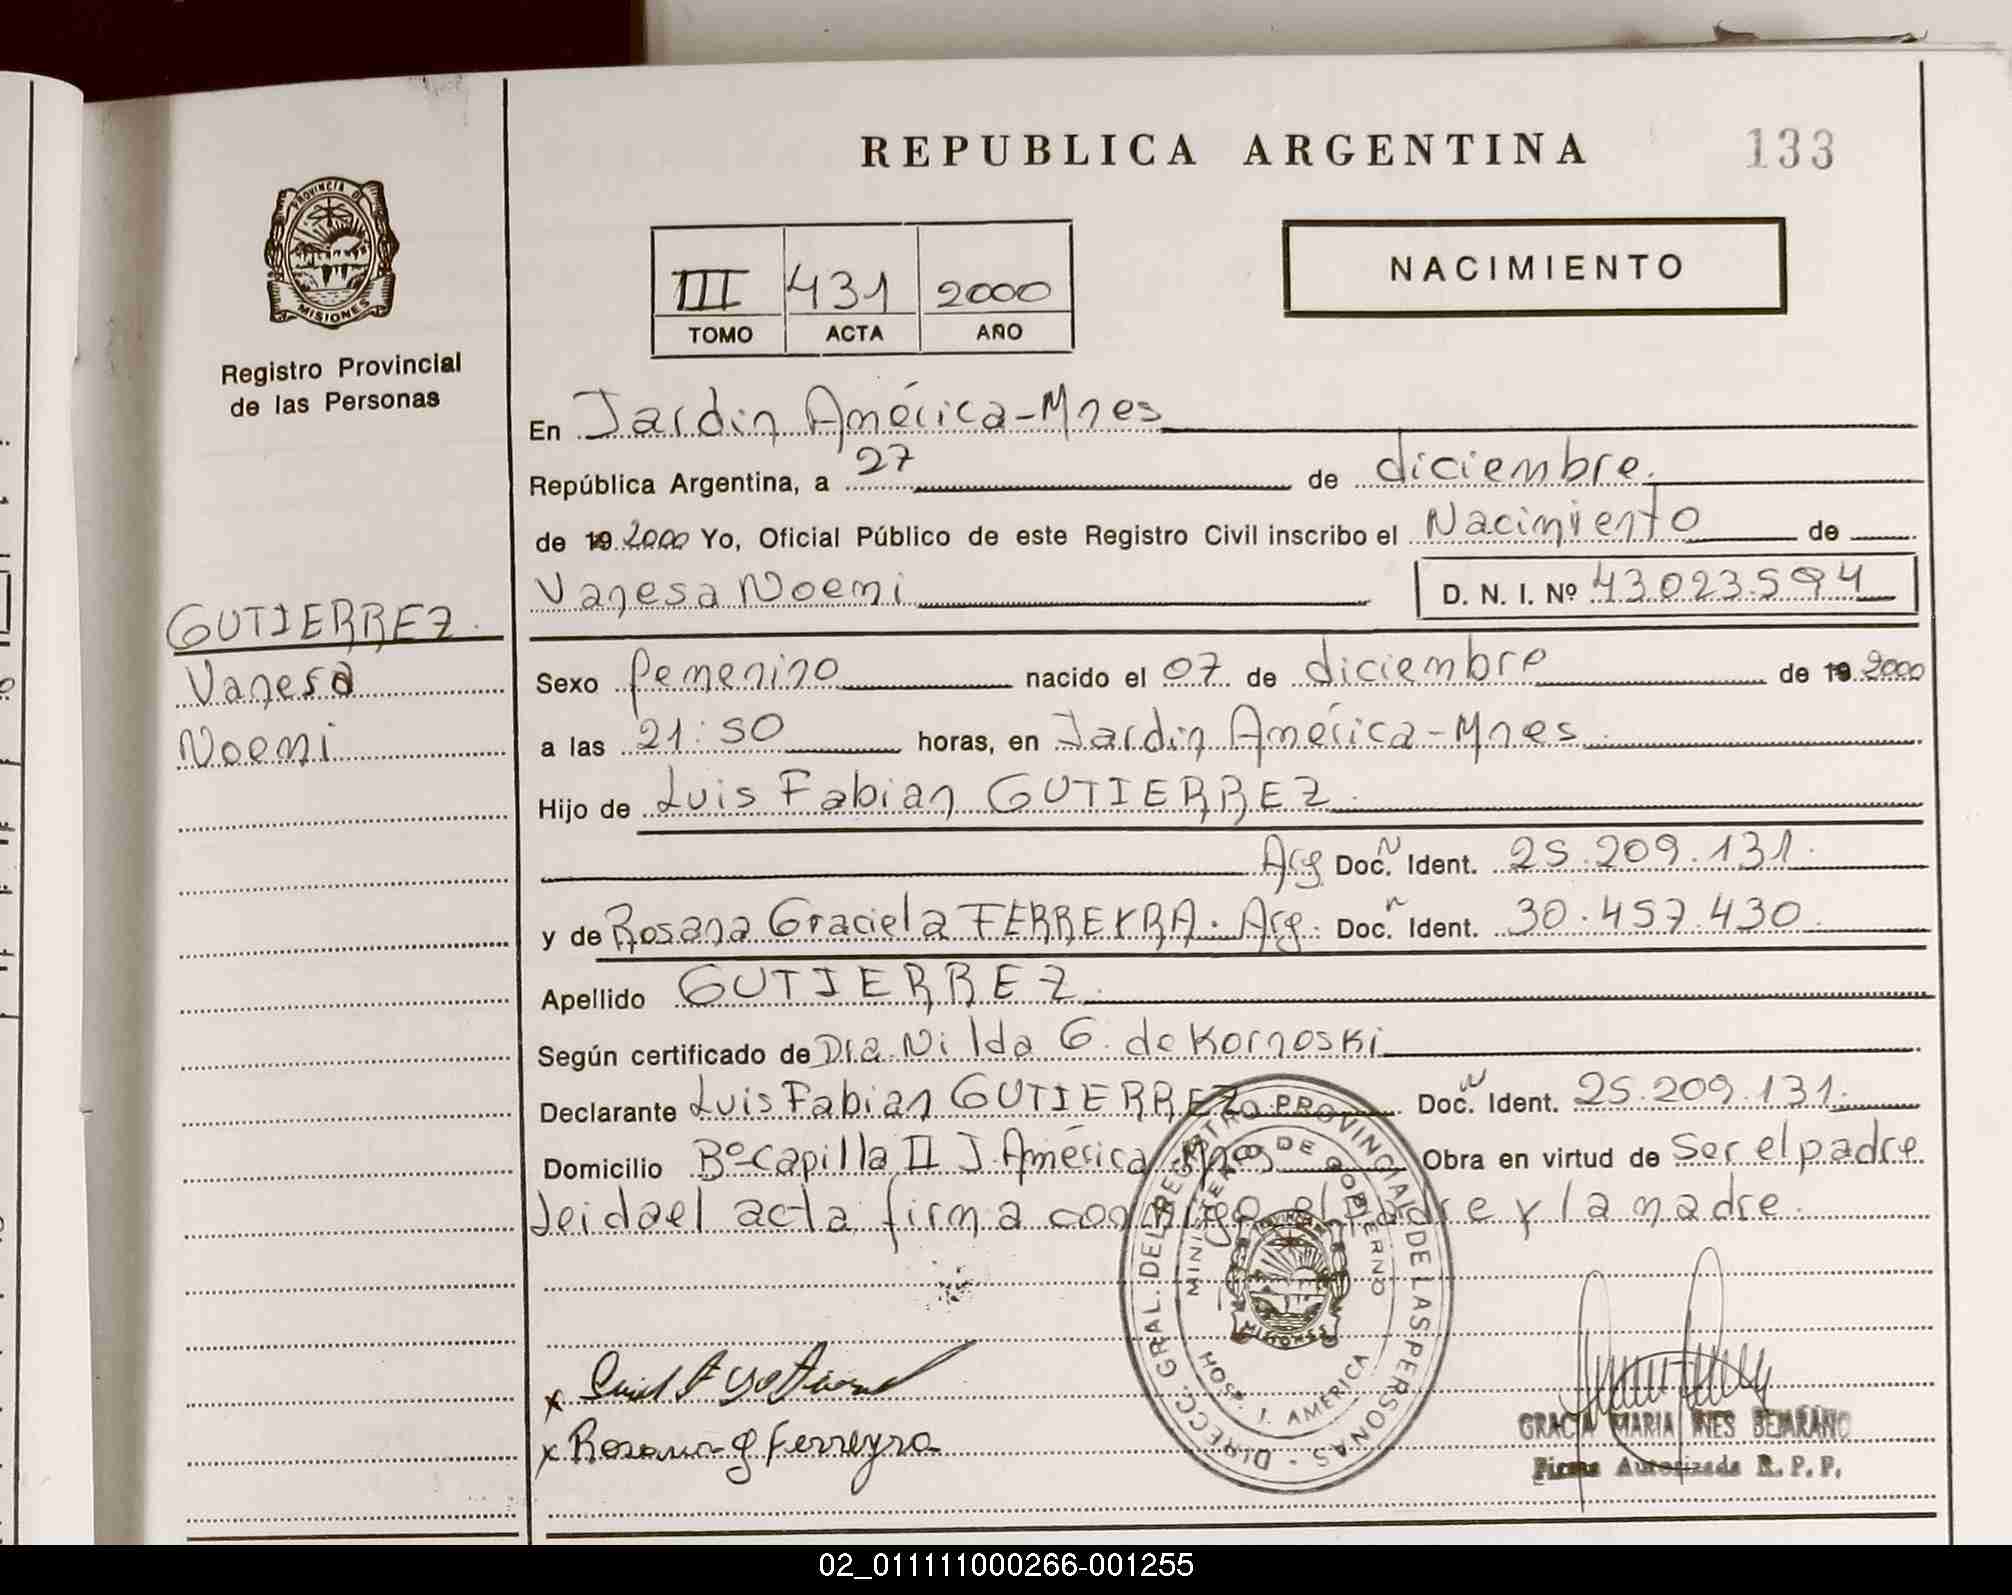 REPUBLICA ARGENTINA
133
PROVINCIA DE
MISIONES
Registro Provincial
de las Personas
III 431 2000
TOMO ACTA AÑO
NACIMIENTO
En Jardin América-Mnes
República Argentina, a 27 de diciembre.
de 19 2000 Yo, Oficial Público de este Registro Civil inscribo el Nacimiento de
Vanesa Noemi D. N. I. Nº 43.023.594
GUTIERREZ.
Vanesa
Noemi
Sexo femenino nacido el 07 de diciembre de 19 2000
a las 21:50 horas, en Jardin América-Mnes.
Hijo de Luis Fabian GUTIERREZ.
Arg Doc. N Ident. 25.209.131.
y de Rosana Graciela FERREYRA. Arg. Doc. N Ident. 30.457.430.
Apellido GUTIERREZ.
Según certificado de Dra. Nilda G. de Kornoski
Declarante Luis Fabian GUTIERREZ Doc. N Ident. 25.209.131.
Domicilio Bº Capilla II J. América-Mnes Obra en virtud de Ser el padre
leida el acta firma conmigo el padre y la madre.
DIRECC. GRAL. DEL REGISTRO PROVINCIAL DE LAS PERSONAS -
MINISTERIO DE GOBIERNO
MISIONES
HOSP. J. AMERICA
x
x Rosana G Ferreyra
GRACIA MARIA INES BEJARANO
Firma Autorizada R. P. P.
02_011111000266-001255